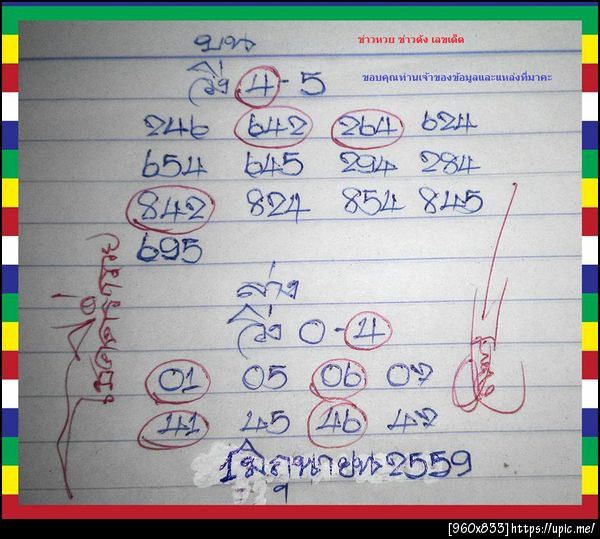 บน
ข่าวหวย ข่าวดัง เลขเด็ด
วิ่ง 4-5
ขอบคุณท่านเจ้าของข้อมูลและแหล่งที่มาคะ
246 642 264 624
654 645 294 284
842 824 854 845
695
ล่าง
วิ่ง 0-4
01 05 06 07
41 45 46 47
1มิถุนายน2559
[960x833]https://upic.me/